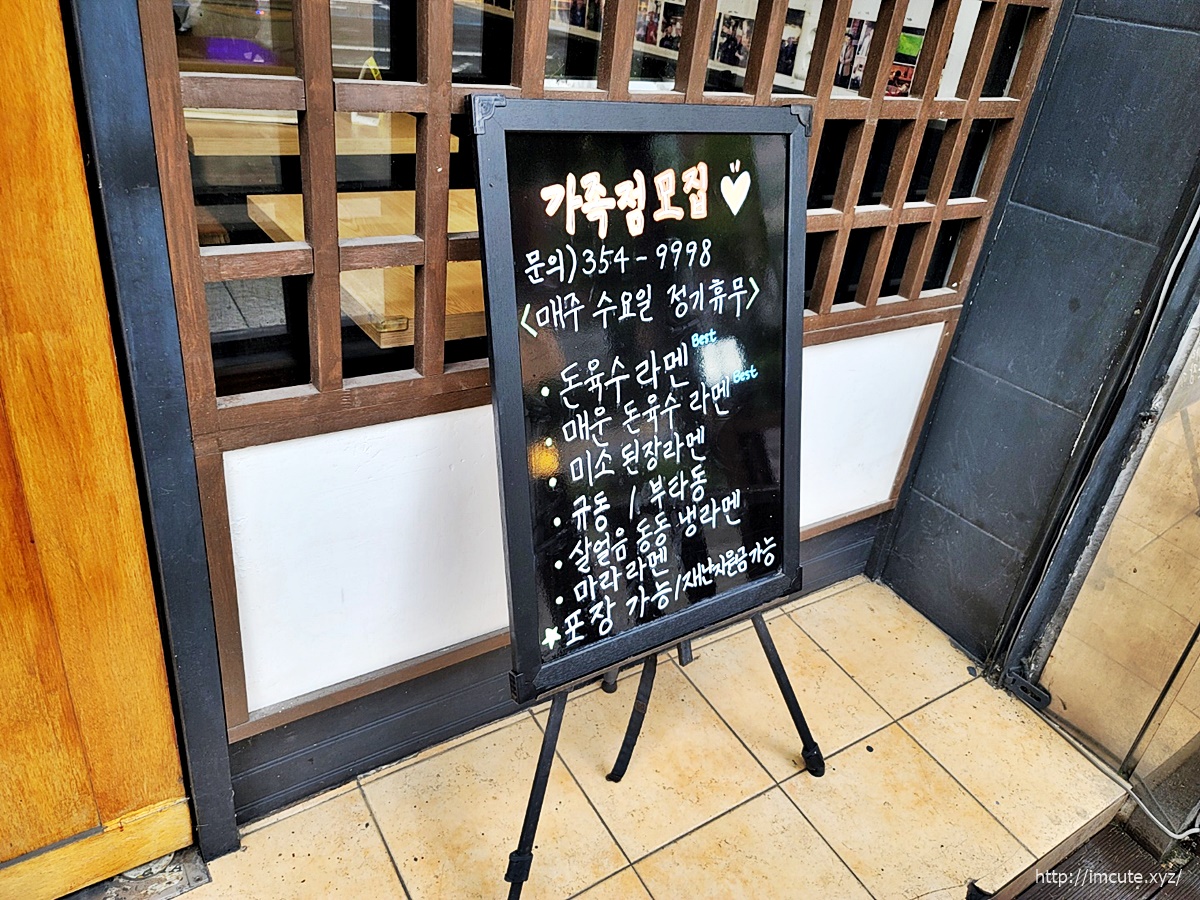 가족점 모집
문의) 354-9998
<매주 수요일 정기휴무>
• 돈육수 라멘 Best
• 매운 돈육수 라멘 Best
• 미소 된장라멘
• 규동 / 부타동
• 살얼음 동동 냉라멘
• 마라 라멘
★ 포장 가능/재난지원금 가능
http://imcute.xyz/